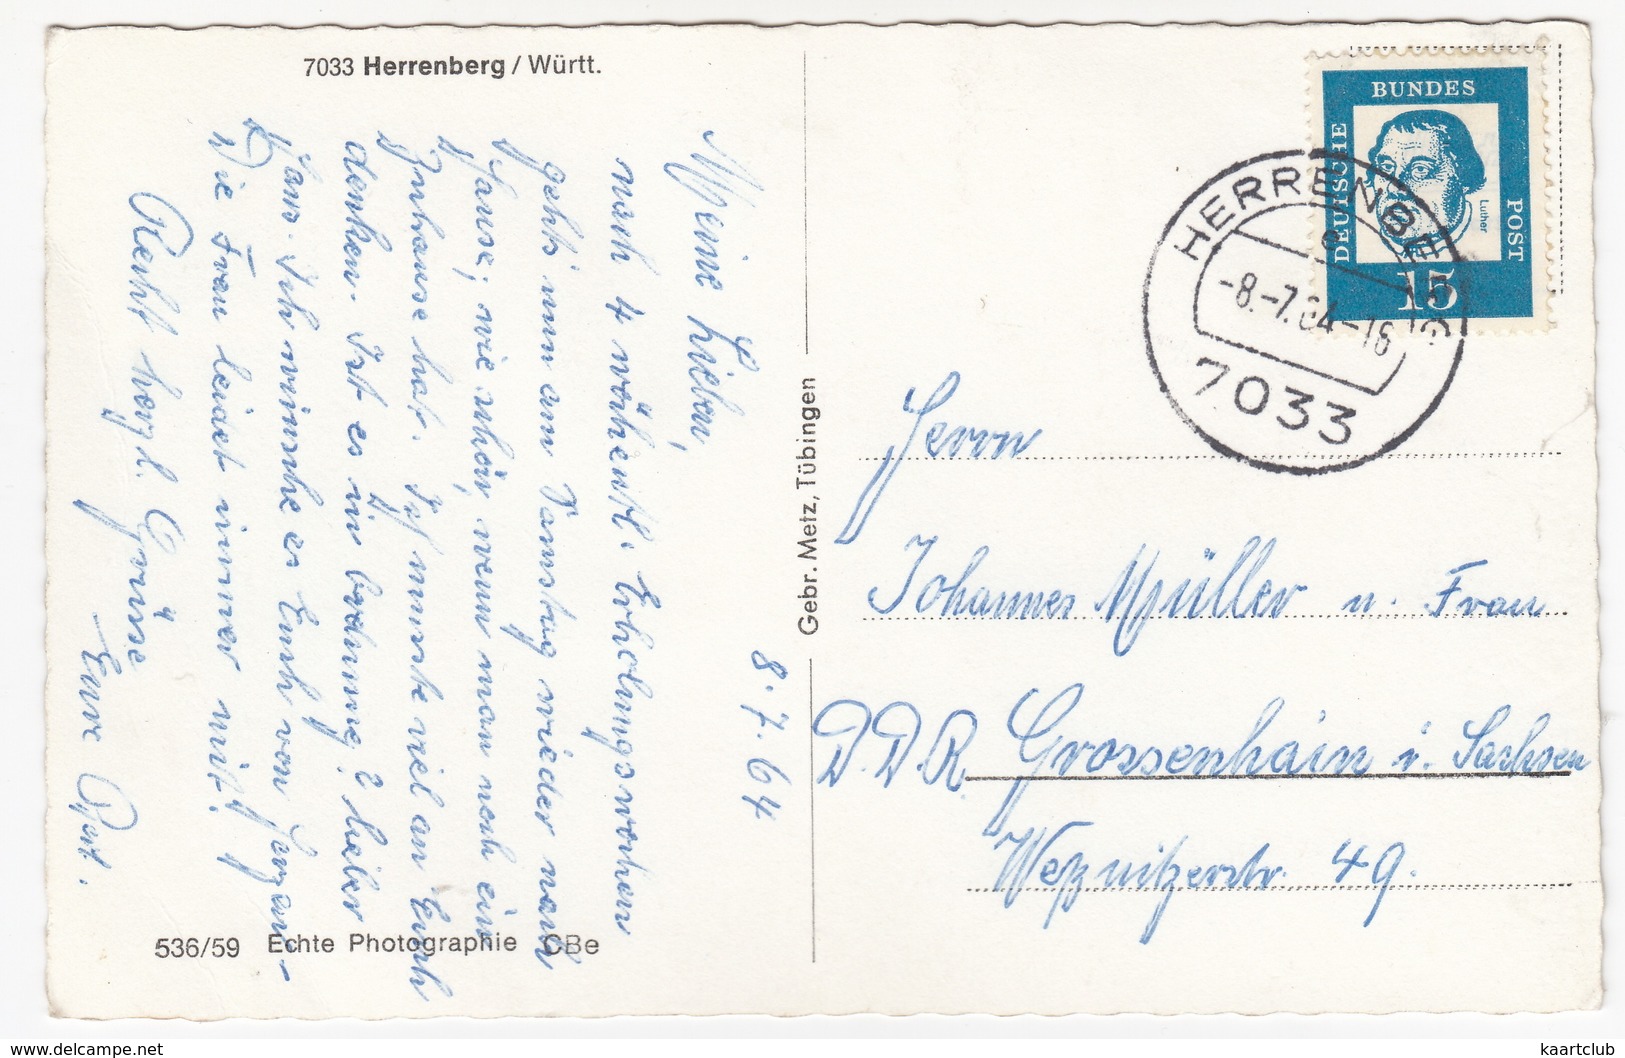 7033 Herrenberg / Württ.
Meine Lieben,
nach 4 wöchentl. Erholungswochen
geht's nun am Samstag wieder nach
Hause, wie schön, wenn man noch ein
Zuhause hat. Ich musste viel an Euch
denken. Ist es in Ordnung? lieber
Hans. Ich wünsche es Euch von Herzen.-
Die Frau leidet immer mit!
Recht herzl. Grüsse
Eure
8.7.64
536/59 Echte Photographie CBe
Gebr. Metz, Tübingen
DEUTSCHE
BUNDES
POST
Luther
15
HERRENBERG
e
-8.-7.64-16
7033
Herrn
Johannes Müller u. Frau
D.D.R. Grossenhain i. Sachsen
Weßnitzerstr. 49.
delcampe.net
kaartclub